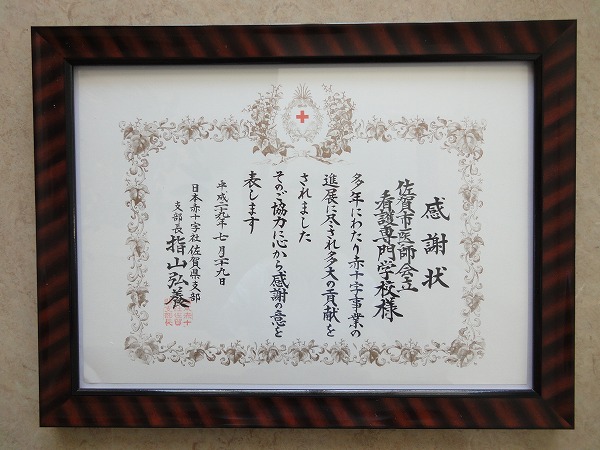 感謝状
佐賀市医師会立
看護専門学校様
多年にわたり赤十字事業の
進展に尽され多大の貢献を
されました
そのご協力に心から感謝の意を
表します
平成二九年七月十九日
日本赤十字社佐賀県支部
支部長 指山弘養